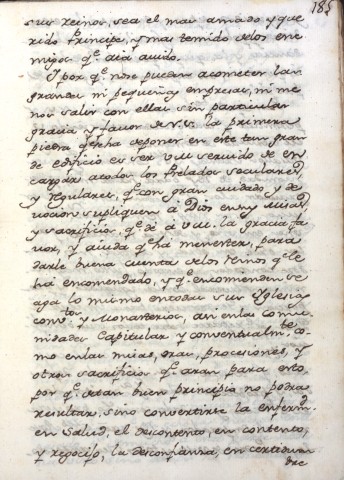 185
sus reinos, sea el mas amado y que
rido Principe, y mas temido delos ene
migos q.e aia auido.
I por q.e nose puedan acometer las
grandes ni pequeñas empresas, ni me
nos salir con ellas sin particular
gracia y fauor de N. S. la primera
piedra q.e se ha de poner en este tan gran
de edificio es ser V M seruido de en
cargar atodos los Prelados seculares
y regulares, q.e con gran cuidado, y de
uocion supliquen à Dios en sus misas
y sacrificios, q.e dè a V M. la gracia fa
uor, y aiuda q.e ha menester, para
darle buena cuenta delos reinos q.e le
ha encomendado, y q.e encomienden se
aga lo mismo entodas sus Iglesias
conv.tos y Monasterios, asi enlas Comu
nidades Capitular y conventualm.te co
mo enlas misas, orac. procesiones, y
otros sacrificios q.e aran para esto
por q.e detan buen principio no podra
resultar, sino convertirse la enferm.d
en Salud, el descontento, en contento,
y regocijo, la desconfianza, en certidum
bre